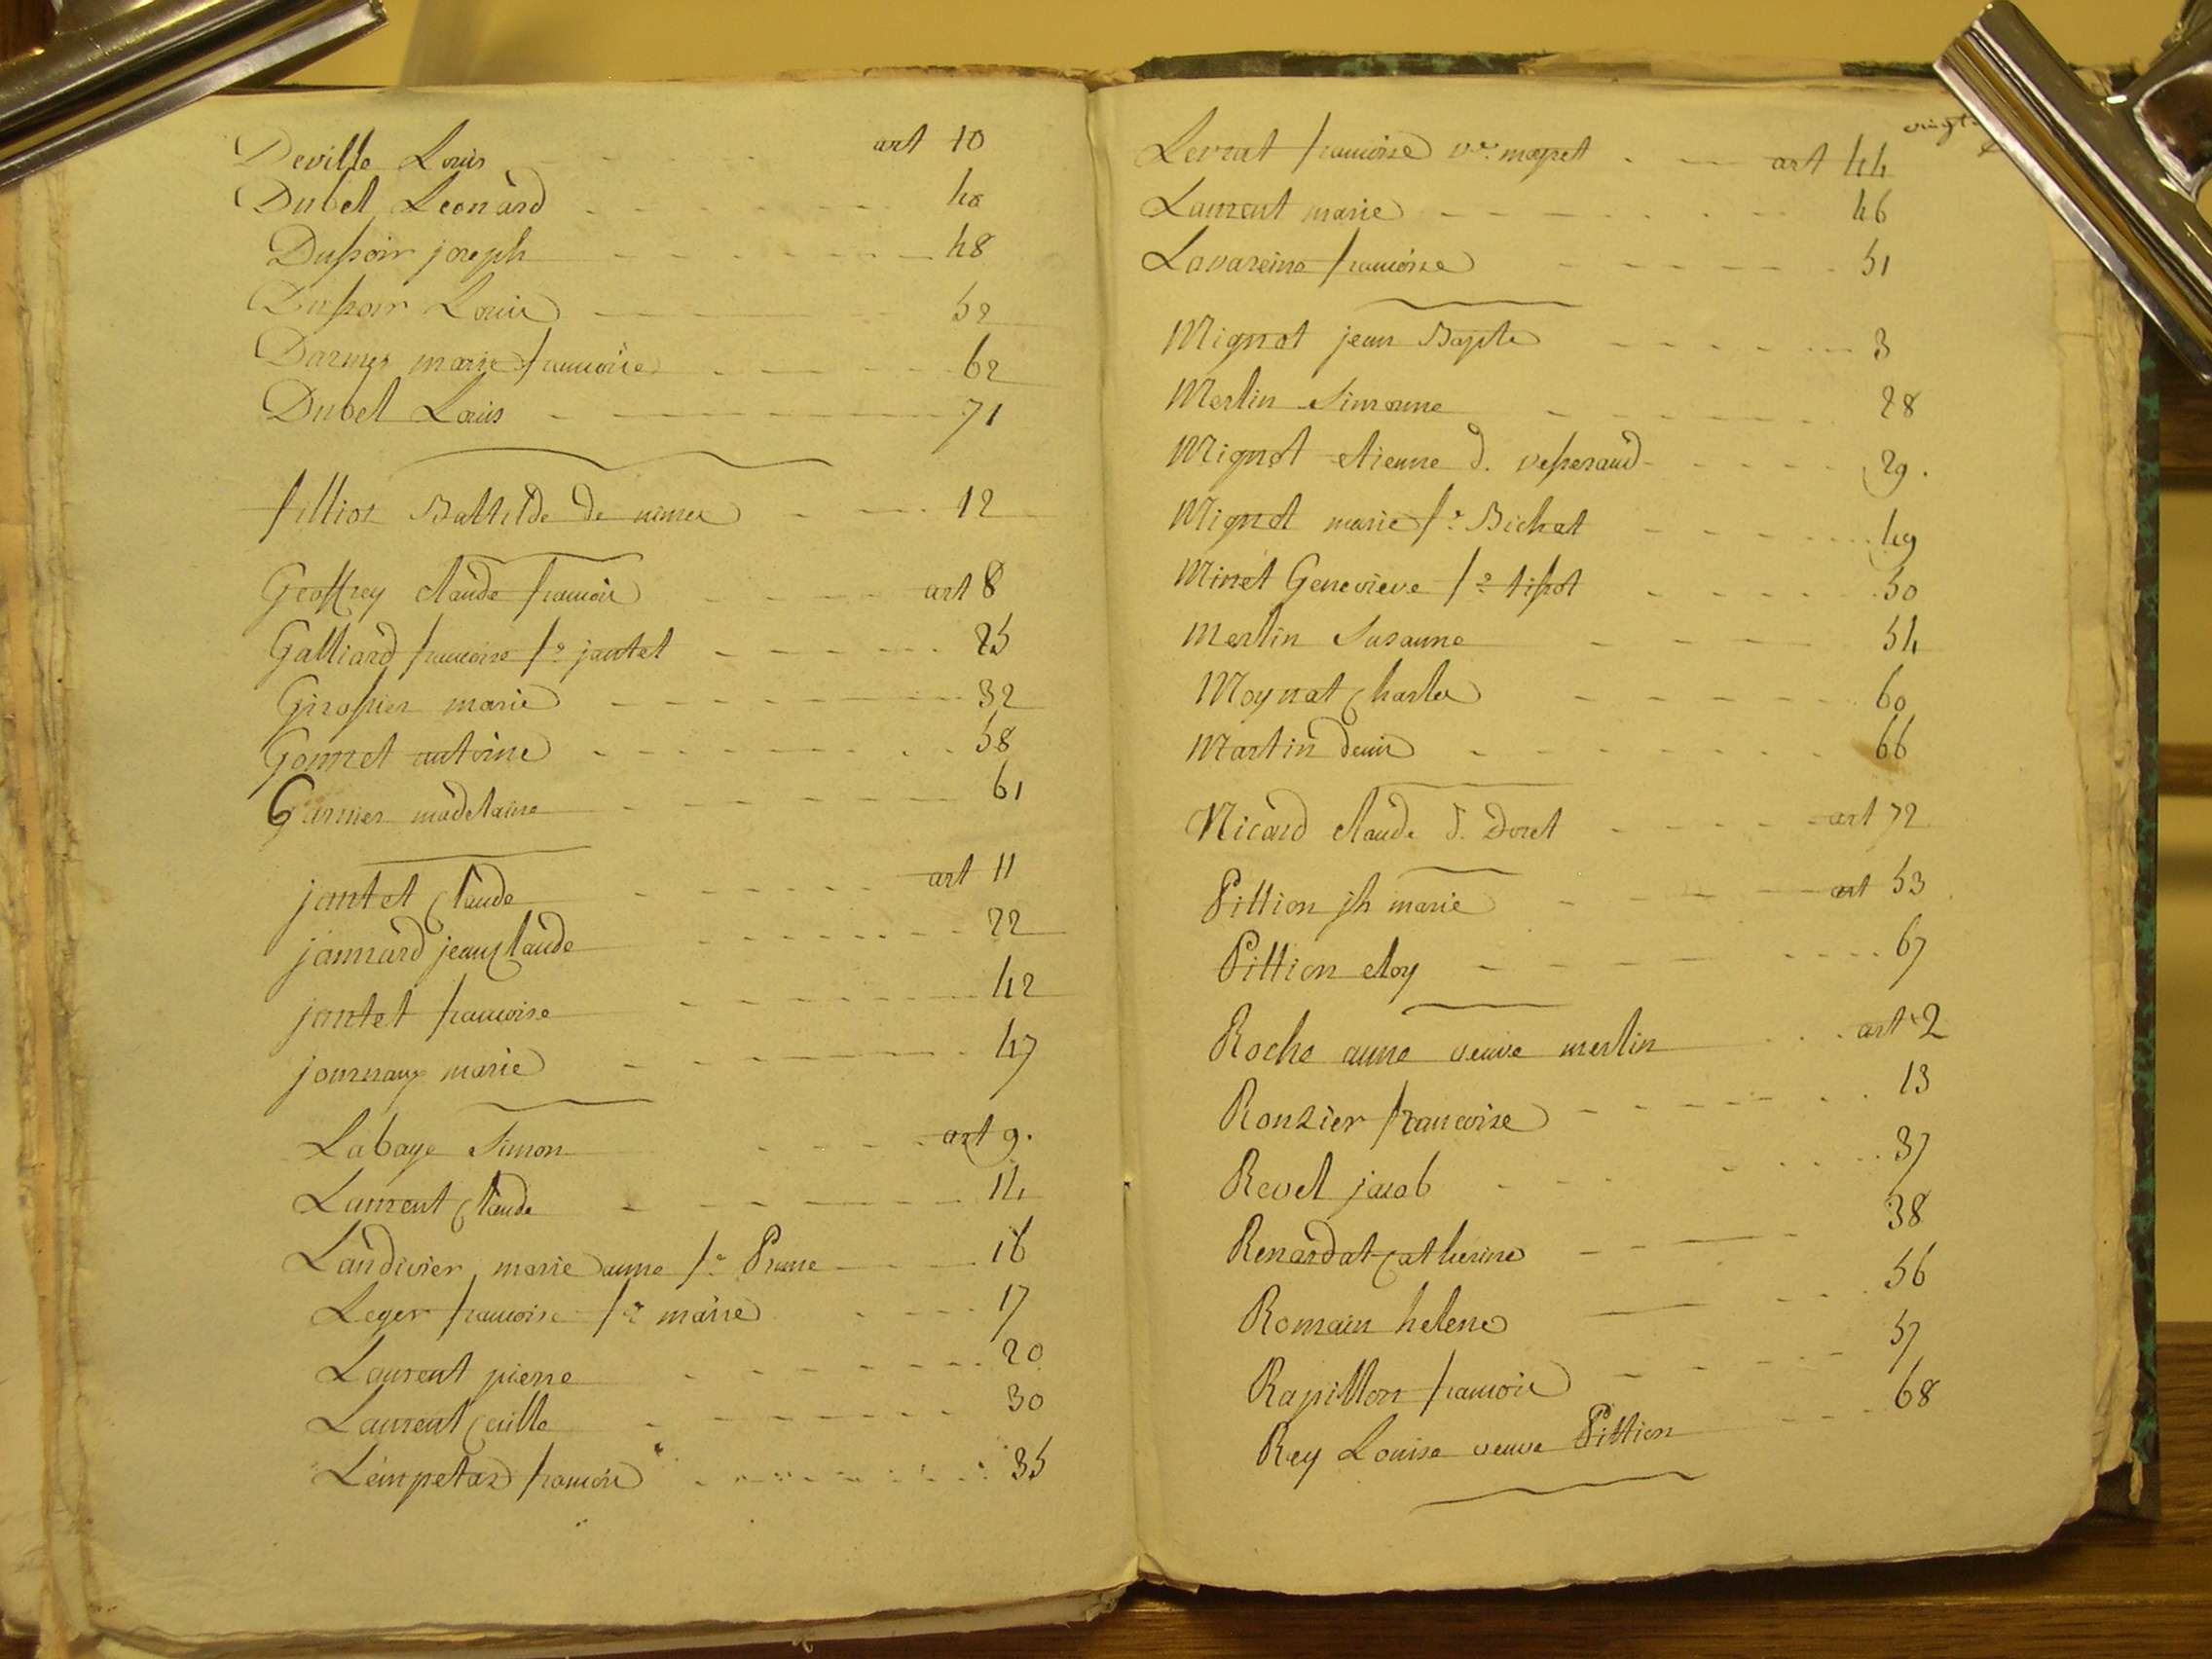 Deville Louis art 10
Dubet Leonard 40
Dussoir joseph 48
Dussoir Louis 52
Darmes marie francoise 62
Dubet Louis 71
fillion Baltilde de nimes 12
Geoffrey claude francois art 8
Galliard francoise fe jantet 25
Girossier marie 32
Gonnet antoine 58
Garnier madelaine 61
jantet Claude art 11
jannard jean Claude 22
jantet francoise 42
journaux marie 47
Labaye Simon art 9.
Laurent Claude 14
Landivier marie anne fe Prune 16
Leger francoise fe maire 17
Laurent pierre 20
Laurent Cecille 30
Lempetaz francois 35
vingt
Levrat francoise ve art 44
Laurent marie 46
Lavareine francoise 51
Mignot jean Bapte 3
Merlin Simonne 28
Mignot etienne d. vesseraud 29.
Mignot marie fe Bichat 49
Minet Genevieve fe tissot 50
Merlin Susanne 54
Moynat Charles 60
Martin denis 66
Nicard claude d. Doret art 72
Pittion jh marie art 53
Pittion eloy 67
Roche anne veuve merlin art 2
Ronzier francoise 13
Revel jacob 37
Renardat Catherine 38
Romain helene 56
Rapillon francois 57
Rey Louise veuve Pittion 68